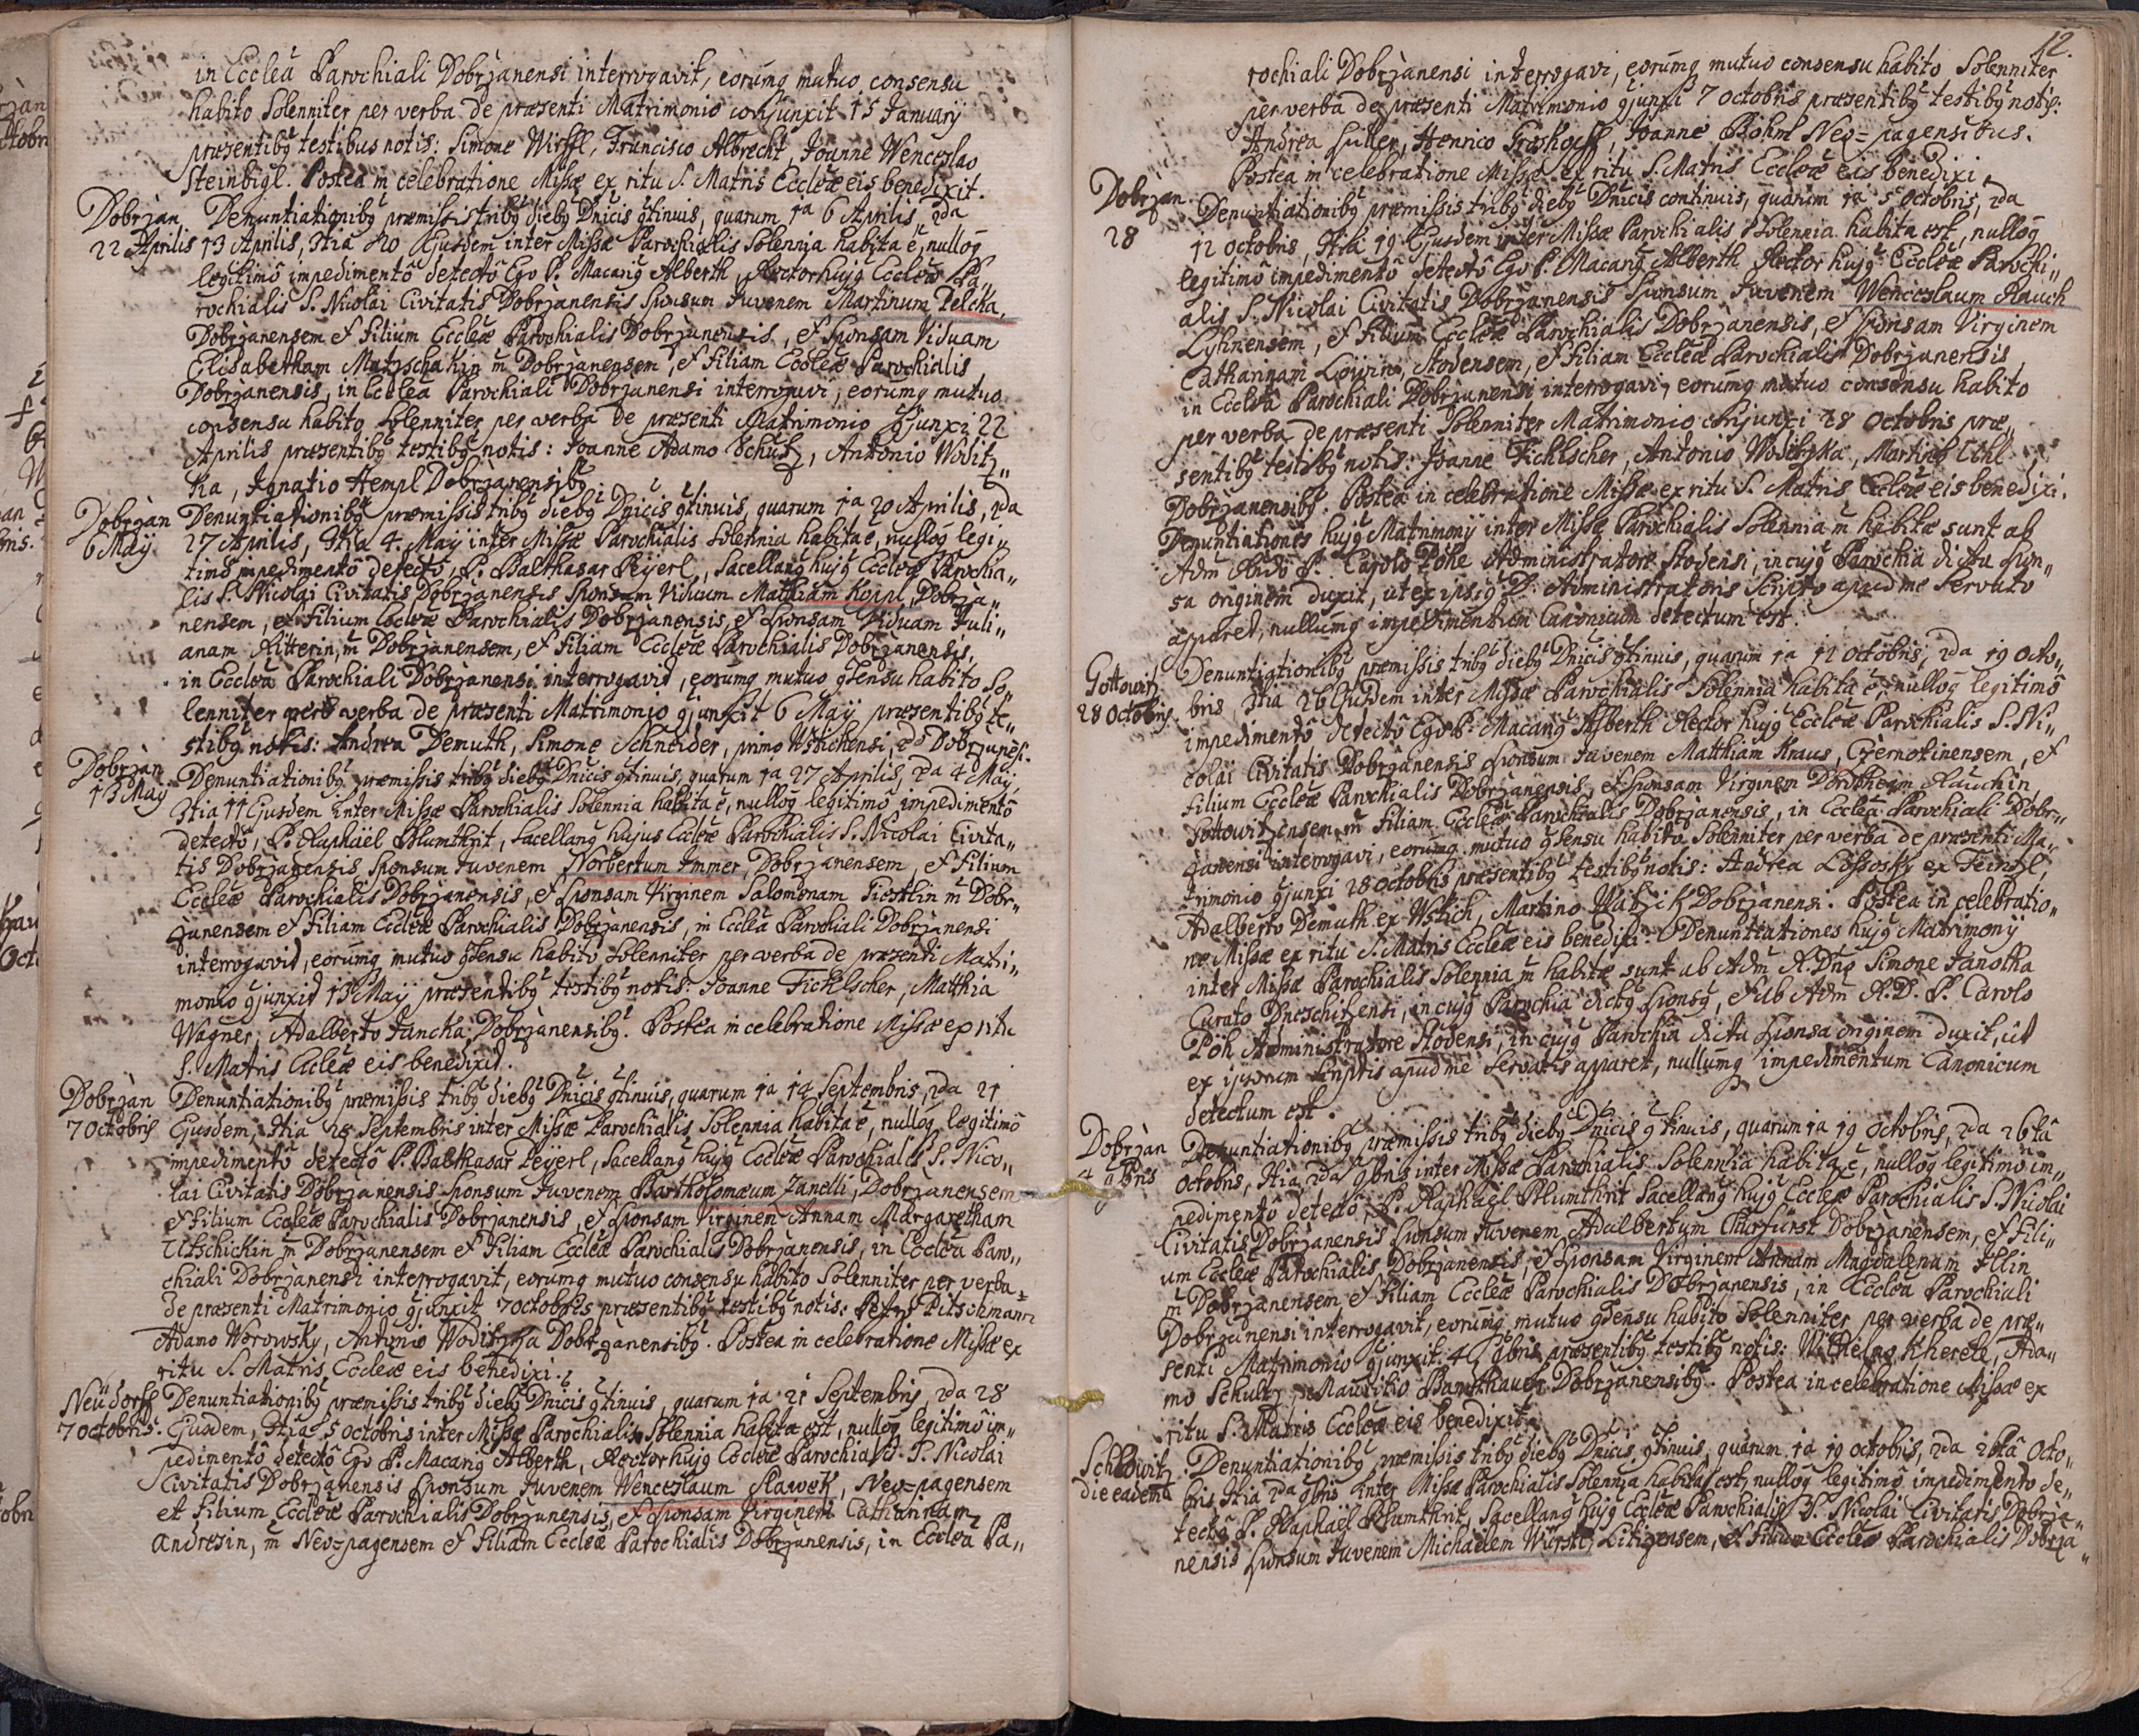 in Ecclea Parochiali Dobrzanensi interrogavit, eorumq mutuo consensu
habito Solenniter per verba de præsenti Matrimonio conjunxit 15 January
præsentibq testibus notis: Simone Wirffl, Francisco Albrecht, Joanne Wenceslao
Steinbigl. Postea in celebratione Missæ ex ritu S. Matris Eccleæ eis benedixit.
Dobrzan Denuntiationibq præmissis tribq diebq Dnicis qtinuis, quarum 1a 6 Aprilis, 2da
22 Aprilis 13 Aprilis, 3tia 20 Ejusdem inter Missæ Parochialis Solennia habita e, nulloq
legitimo impedimento detecto Ego P. Macariq Alberth, Rector hujq Eccleæ Pa„
rochialis S. Nicolai Civitatis Dobrzanensis Sponsum Juvenem Martinum Pelcka,
Dobrzanensem et Filium Eccleæ Parochialis Dobrzanensis, et Sponsam Viduam
Elisabetham Matzschakin m Dobrzanensem, et Filiam Eccleæ Parochialis
Dobrzanensis, in Ecclea Parochiali Dobrzanensi interrogavi, eorumq mutuo
consensu habito Solenniter per verba de præsenti Matrimonio qjunxi 22
Aprilis præsentibq testibq notis: Joanne Adamo Schutz, Antonio Woditz„
ka, Ignatio Hempl Dobrzanensibq
Dobrzan Denuntiationibq præmissis tribq diebq Dnicis qtinuis, quarum 1a 20 Aprilis, 2da
6 Maij 27 Aprilis, 3tia 4. May inter Missæ Parochialis Solennia habita e, nulloq legi„
timo impedimento detecto, P. Balthasar Peyerl, Sacellanq hujq Eccleæ Parochia„
lis S. Nicolai Civitatis Dobrzanensis Sponsum Viduum Mathiam Koppl, Dobrza„
nensem, et Filium Eccleæ Parochialis Dobrzanensis, et Sponsam Viduam Juli„
anam Ritterin, m Dobrzanensem, et Filiam Eccleæ Parochialis Dobrzanensis,
in Ecclea Parochiali Dobrzanensi interrogavit, eorumq mutuo qsensu habito So„
lenniter per verba de præsenti Matrimonio qjunxit 6 Maij præsentibq te„
stibq notis: Andrea Demuth, Simone Schneider, primo Wstichensi, 2do Dobrzanesi.
Dobrzan Denuntiationibq præmissis tribq diebq Dnicis qtinuis, quarum 1a 27 Aprilis, 2da 4 Maij,
13 May 3tia 11 Ejusdem inter Missæ Parochialis Solennia habita e, nulloq legitimo impedimento
detecto, P. Raphäel Blumthrit, Sacellanq hujus Eccleæ Parochialis S. Nicolai Civita„
tis Dobrzanensis, Sponsum Juvenem Norbertum Immer, Dobrzanensem, et Filium
Eccleæ Parochialis Dobrzanensis, et Sponsam Virginem Salomenam m Dobr„
zanensem et Filiam Eccleæ Parochialis Dobrzanensis, in Ecclea Parochiali Dobrzanensi
interrogavit, eorumq mutuo qsensu habito Solenniter per verba de præsenti Matri„
monio qjunxit 13 Maij præsentibq testibq notis: Joanne Fichtscher, Matthia
Wagner, Adalberto Jancha, Dobrzanensibq. Postea in celebratione Missæ ex ritu
S. Matris Eccleæ eis benedixit.
Dobrzan Denuntiationibq præmissis tribq diebq Dnicis qtinuis, quarum 1a 14 Septembris, 2da 21
7 Octobris Ejusdem, 3tia 28 Septembris inter Missæ Parochialis Solennia habita e, nulloq legitimo
impedimento detecto P. Balthasar Peyerl, Sacellanq hujq Eccleæ Parochialis S. Nico„
lai Civitatis Dobrzanensis Sponsum Juvenem Bartholomæum Zanelli, Dobrzanensem
et Filium Eccleæ Parochialis Dobrzanensis, et Sponsam Virginem Annam Margaretham
Utschickin m Dobrzanensem et Filiam Eccleæ Parochialis Dobrzanensis, in Ecclea Paro„
chiali Dobrzanensi interrogavit, eorumq mutuo consensu habito Solenniter per verba
de præsenti Matrimonio qjunxit 7 octobris præsentibq testibq notis: Petro Pitschmann
Adamo Worowsky, Antonio Woditzka Dobrzanensibq. Postea in celebratione Missæ ex
ritu S. Matris Eccleæ eis benedixi.
Neüdorff Denuntiationibq præmissis tribq diebq Dnicis qtinuis, quarum 1a 21 Septembris, 2da 28
7 octobris. Ejusdem, 3tia 5 octobris inter Missæ Parochialis Solennia habita est, nulloq legitimo im„
pedimento detecto Ego P. Macariq Alberth, Rector hujq Eccleæ Parochialis S. Nicolai
Civitatis Dobrzanensis Sponsum Juvenem Wenceslaum Slawek, Neo=pagensem
et Filium Eccleæ Parochialis Dobrzanensis, et Sponsam Virginem Catharinam
Andresin, m Neo=pagensem et Filiam Eccleæ Parochialis Dobrzanensis, in Ecclea Pa„
12.
rochiali Dobrzanensi interrogavi, eorumq mutuo consensu habito Solenniter
per verba de præsenti Matrimonio qjunxi 7 octobris præsentibq testibq notis:
Andrea Suller, Henrico Froshoff, Joanne Böhm Neo=pagensibus.
Postea in celebratione Missæ ex ritu S. Matris Eccleæ eis benedixi.
Dobrzan. Denuntiationibq præmissis tribq diebq Dnicis continuis, quarum 1a 5 octobris, 2da
28 12 octobris, 3tia 19 Ejusdem inter Missæ Parochialis Solennia habita est, nulloq
legitimo impedimento detecto Ego P. Macariq Alberth Rector hujq Eccleæ Parochi„
alis S. Nicolai Civitatis Dobrzanensis Sponsum Juvenem Wenceslaum Rauch
Lyhnensem, et Filium Eccleæ Parochialis Dobrzanensis, et Sponsam Virginem
Catharinam Löwin, Stodensem, et Filiam Eccleæ Parochialis Dobrzanensis
in Ecclea Parochiali Dobrzanensi interrogavi, eorumq mutuo consensu habito
per verba de præsenti Solenniter Matrimonio conjunxi 28 Octobris præ„
sentibq testibq notis: Joanne Fichtscher, Antonio Woditzka, Martino Ethl
Dobrzanensibq. Postea in celebratione Missæ ex ritu S. Matris Eccleæ eis benedixi.
Denuntiationes hujq Matrimonij inter Missæ Parochialis Solennia m habitæ sunt ab
Adm Rndo P. Carolo Pöhe Administratore Stodensi, in cujq Parochia dicta Spon„
sa originem duxit, ut ex ipsiq D. Administratoris Scripto apud me Servato
apparet, nullumq impedimentum Canonicum detectum est.
Gottowitz Denuntiationibq præmissis tribq diebq Dnicis qtinuis, quarum 1a 12 octobris, 2da 19 octo„
28 Octobris. bris 3tia 26 Ejusdem inter Missæ Parochialis Solennia habita e, nulloq legitimo
impedimento detecto Ego P. Macariq Alberth Rector hujq Eccleæ Parochialis S. Ni„
colai Civitatis Dobrzanensis Sponsum Juvenem Matthiam Kraus, Czernotinensem, et
Filium Eccleæ Parochialis Dobrzanensis, et Sponsam Virginem Dorotheam Rauchin
Gottowitzensem m Filiam Eccleæ Parochialis Dobrzanensis, in Ecclea Parochiali Dobr„
zanensi interrogavi, eorumq mutuo qsensu habito Solenniter per verba de præsenti Ma„
trimonio qjunxi 28 octobris præsentibq testibq notis: Andrea Lossosky ex
Adalberto Demuth ex Wstich, Martino Watzik Dobrzanensi. Postea in celebratio„
ne Missæ ex ritu S. Matris Eccleæ eis benedixi. Denuntiationes hujq Matrimonij
inter Missæ Parochialis Solennia m habitæ sunt ab Adm R. Dno Simone Janotka
Curato Dneschitzensi, in cujq Parochia dictq Sponsq, et ab Adm R. D. P. Carolo
Pöh Administratore Stodensi, in cujq Parochia dicta Sponsa originem duxit, ut
ex ipsorum Scriptis apud me Servatis apparet, nullumq impedimentum Canonicum
detectum est.
Dobrzan Denuntiationibq præmissis tribq diebq Dnicis qtinuis, quarum 1a 19 Octobris, 2da 26ta
4 9bris Octobris, 3tia 2da 9bris inter Missæ Parochialis Solennia habita e, nulloq legitimo im„
pedimento detecto, P. Raphäel Blumthrit Sacellanq hujq Eccleæ Parochialis S. Nicolai
Civitatis Dobrzanensis Sponsum Juvenem Adalbertum Churfürst Dobrzanensem, et Fili„
um Eccleæ Parochialis Dobrzanensis, et Sponsam Virginem Annam Magdalenam Illin
m Dobrzanensem et Filiam Eccleæ Parochialis Dobrzanensis, in Ecclea Parochiali
Dobrzanensi interrogavit, eorumq mutuo qsensu habito Solenniter per verba de præ„
senti Matrimonio qjunxit 4 9bris præsentibq testibq notis: Wilhelmo Kherele, Ada„
mo Schultz, Mauritio Bamthauer Dobrzanensibq. Postea in celebratione Missæ ex
ritu S. Matris Eccleæ eis benedixit.
Schlowitz. Denuntiationibq præmissis tribq diebq Dnicis qtinuis, quarum 1a 19 octobris, 2da 26ta Octo„
die eadem bris 3tia 2da 9bris inter Missæ Parochialis Solennia habita est, nulloq legitimo impedimento de„
tecto P. Raphäel Blumthrit, Sacellanq hujq Eccleæ Parochialis S. Nicolai Civitatis Dobrza„
nensis Sponsum Juvenem Michaelem Würstl, Litizensem, et Filium Eccleæ Parochialis Dobrza„